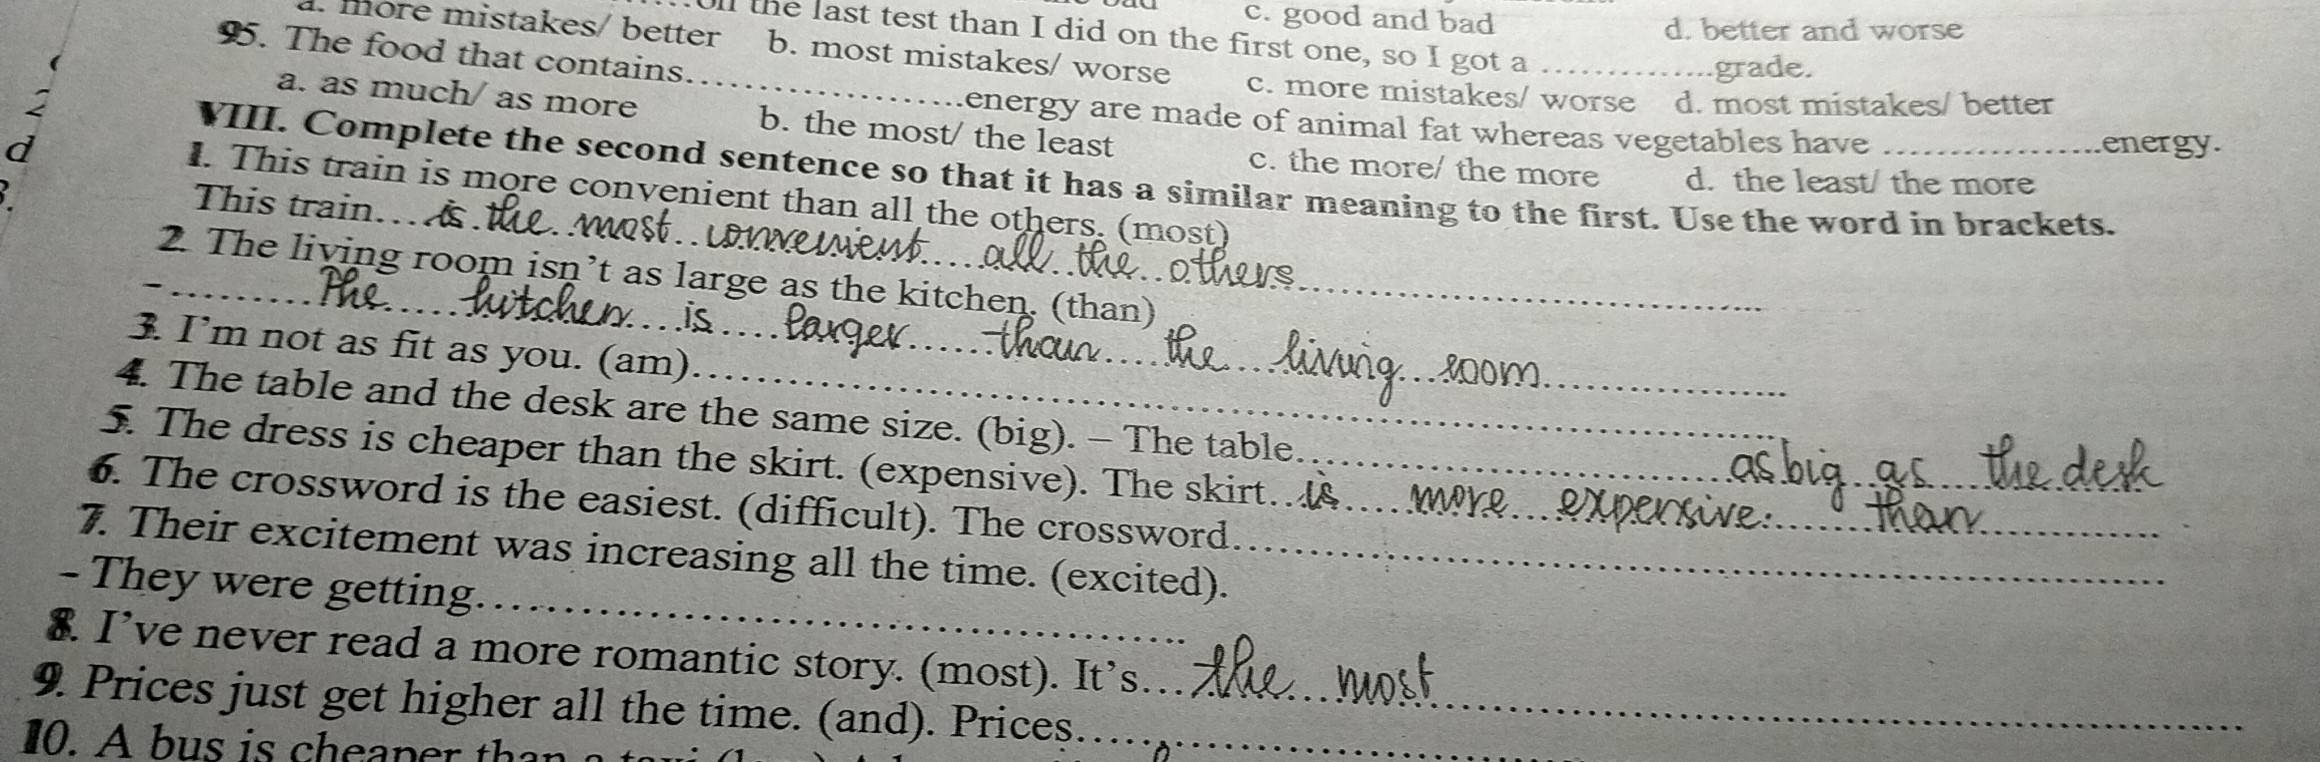 c. good and bad d. better and worse
on the last test than I did on the first one, so I got a ...............grade.
a. more mistakes/ better b. most mistakes/ worse c. more mistakes/ worse d. most mistakes/ better
95. The food that contains.....................energy are made of animal fat whereas vegetables have ..................energy.
a. as much/ as more b. the most/ the least c. the more/ the more d. the least/ the more
VIII. Complete the second sentence so that it has a similar meaning to the first. Use the word in brackets.
1. This train is more convenient than all the others. (most)
This train... is the most convenient all the others
2. The living room isn't as large as the kitchen. (than)
- The kitchen is larger than the living room
3. I'm not as fit as you. (am)..........
4. The table and the desk are the same size. (big). – The table.......... as big as the desk
5. The dress is cheaper than the skirt. (expensive). The skirt... is more expensive than
6. The crossword is the easiest. (difficult). The crossword..........
7. Their excitement was increasing all the time. (excited).
- They were getting..........
8. I've never read a more romantic story. (most). It's... the most
9. Prices just get higher all the time. (and). Prices..........
10. A bus is cheaper than a taxi
2
d
3.